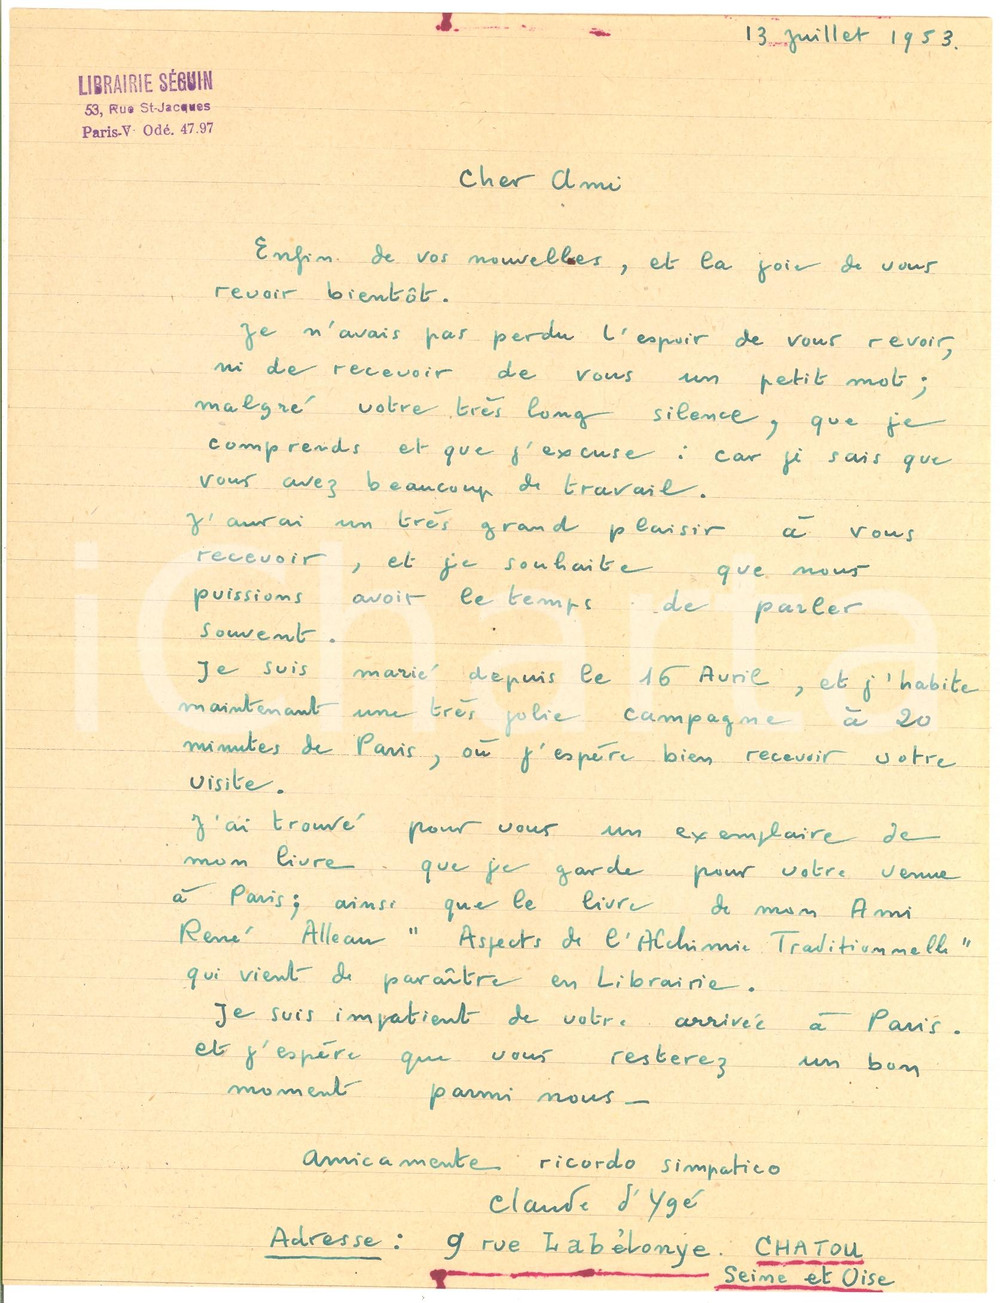 13 Juillet 1953.
LIBRAIRIE SÉGUIN
53, Rue St-Jacques
Paris-V Odé. 47.97
Cher Ami
Enfin de vos nouvelles, et la joie de vous
revoir bientôt.
Je n'avais pas perdu l'espoir de vous revoir,
ni de recevoir de vous un petit mot ;
malgré votre très long silence, que je
comprends et que j'excuse : car je sais que
vous avez beaucoup de travail.
J'aurai un très grand plaisir à vous
recevoir, et je souhaite que nous
puissions avoir le temps de parler
souvent.
Je suis marié depuis le 16 Avril, et j'habite
maintenant une très jolie campagne à 20
minutes de Paris, où j'espère bien recevoir votre
visite.
J'ai trouvé pour vous un exemplaire de
mon livre que je garde pour votre venue
à Paris; ainsi que le livre de mon Ami
René Alleau " Aspects de l'Alchimie Traditionnelle "
qui vient de paraître en Librairie.
Je suis impatient de votre arrivée à Paris.
et j'espère que vous resterez un bon
moment parmi nous —
Amicamente ricordo simpatico
Claude d'Ygé
Adresse : 9 rue Labélonye. CHATOU
Seine et Oise
iCharta